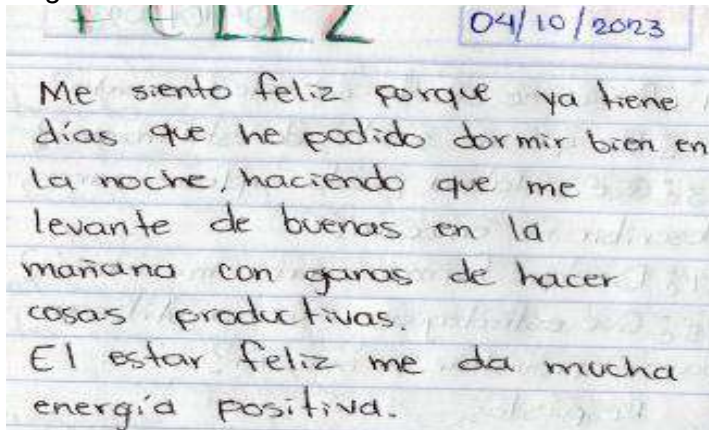 FELIZ 04/10/2023
Me siento feliz porque ya tiene
días que he podido dormir bien en
la noche, haciendo que me
levante de buenas en la
mañana con ganas de hacer
cosas productivas.
El estar feliz me da mucha
energía positiva.